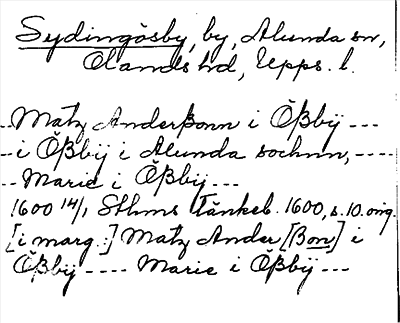 Sydingösby, by, Alunda sn,
Olands hd, Upps. l.
-- Matz Anderßonn i Ößbÿ ---
- i Ößbÿ i Alunda sochnn, ----
-- Marie i Ößbÿ ---
1600 14/1 Sthms Tänkeb. 1600, s. 10. orig.
[i marg.:] Matz Ander[ßon] i
Ößbÿ ---- Marie i Ößbÿ ---